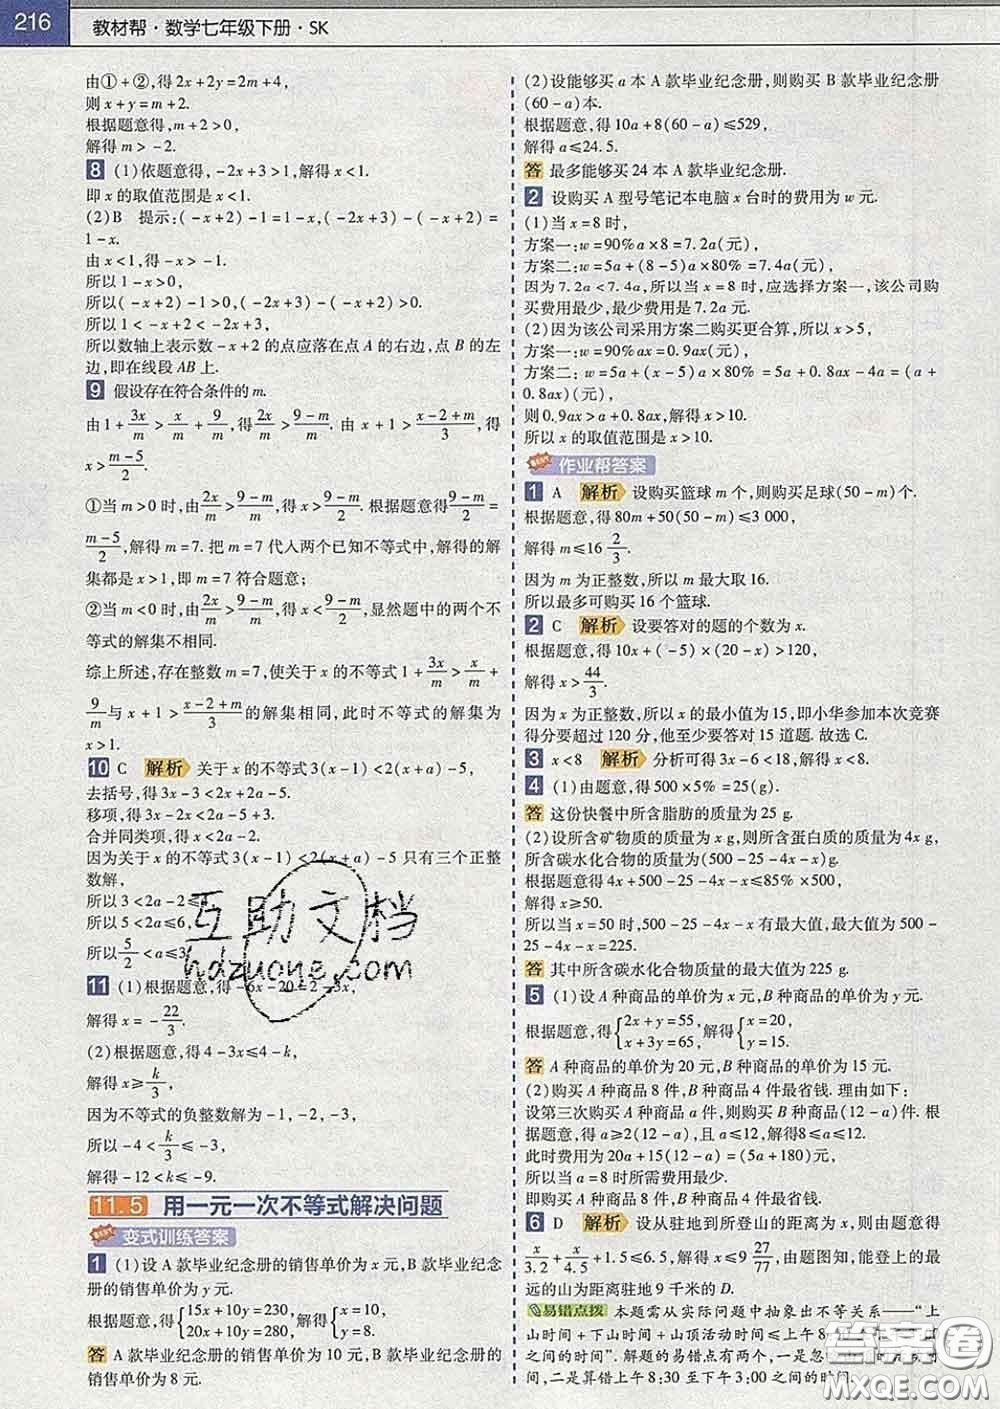 216 教材帮·数学七年级下册·SK
由①+②,得2x+2y=2m+4,
则x+y=m+2.
根据题意得,m+2>0,
解得m>-2.
8 (1)依题意得,-2x+3>1,解得x<1.
即x的取值范围是x<1.
(2)B 提示:(-x+2)-1=1-x,(-2x+3)-(-x+2)=
1-x.
由x<1,得-x>-1.
所以1-x>0,
所以(-x+2)-1>0,(-2x+3)-(-x+2)>0.
所以1<-x+2<-2x+3,
所以数轴上表示数-x+2的点应落在点A的右边,点B的左
边,即在线段AB上.
9 假设存在符合条件的m.
由1+3x/m>x/m+9/m,得2x/m>(9-m)/m.由x+1>(x-2+m)/3,得
x>(m-5)/2.
①当m>0时,由2x/m>(9-m)/m,得x>(9-m)/2.根据题意得(9-m)/2=
(m-5)/2,解得m=7.把m=7代入两个已知不等式中,解得的解
集都是x>1,即m=7符合题意;
②当m<0时,由2x/m>(9-m)/m,得x<(9-m)/2,显然题中的两个不
等式的解集不相同.
综上所述,存在整数m=7,使关于x的不等式1+3x/m>x/m+
9/m与x+1>(x-2+m)/3的解集相同,此时不等式的解集为
x>1.
10 C 解析 关于x的不等式3(x-1)<2(x+a)-5,
去括号,得3x-3<2x+2a-5.
移项,得3x-2x<2a-5+3.
合并同类项,得x<2a-2.
因为关于x的不等式3(x-1)<2(x+a)-5只有三个正整
数解,
所以3<2a-2≤
所以5<2a≤6,
所以5/2<a≤3
11 (1)根据题意,得-6x-20=2-3x,
解得x=-22/3.
(2)根据题意,得4-3x≤4-k,
解得x≥k/3,
因为不等式的负整数解为-1,-2,-3,
所以-4<k/3≤-3,
解得-12<k≤-9.
11.5 用一元一次不等式解决问题
变式训练答案
1 (1)设A款毕业纪念册的销售单价为x元,B款毕业纪念
册的销售单价为y元.
根据题意,得{15x+10y=230, 20x+10y=280,解得{x=10, y=8.
答 A款毕业纪念册的销售单价为10元,B款毕业纪念册的
销售单价为8元.
(2)设能够买a本A款毕业纪念册,则购买B款毕业纪念册
(60-a)本.
根据题意,得10a+8(60-a)≤529,
解得a≤24.5.
答 最多能够买24本A款毕业纪念册.
2 设购买A型号笔记本电脑x台时的费用为w元.
(1)当x=8时,
方案一:w=90%a×8=7.2a(元),
方案二:w=5a+(8-5)a×80%=7.4a(元),
因为7.2a<7.4a,所以当x=8时,应选择方案一,该公司购
买费用最少,最少费用是7.2a元.
(2)因为该公司采用方案二购买更合算,所以x>5,
方案一:w=90%ax=0.9ax(元),
方案二:w=5a+(x-5)a×80%=5a+0.8ax-4a=(a+
0.8ax)(元),
则0.9ax>a+0.8ax,解得x>10.
所以x的取值范围是x>10.
作业帮答案
1 A 解析 设购买篮球m个,则购买足球(50-m)个.
根据题意,得80m+50(50-m)≤3 000,
解得m≤16 2/3.
因为m为正整数,所以m最大取16.
所以最多可购买16个篮球.
2 C 解析 设要答对的题的个数为x.
根据题意,得10x+(-5)×(20-x)>120,
解得x>44/3.
因为x为正整数,所以x的最小值为15,即小华参加本次竞赛
得分要超过120分,他至少要答对15道题.故选C.
3 x<8 解析 分析可得3x-6<18,解得x<8.
4 (1)由题意,得500×5%=25(g).
答 这份快餐中所含脂肪的质量为25 g.
(2)设所含矿物质的质量为x g,则所含蛋白质的质量为4x g,
所含碳水化合物的质量为(500-25-4x-x)g.
根据题意得4x+500-25-4x-x≤85%×500,
解得x≥50.
所以当x=50时,500-25-4x-x有最大值,最大值为500-
25-4x-x=225.
答 其中所含碳水化合物质量的最大值为225 g.
5 (1)设A种商品的单价为x元,B种商品的单价为y元.
根据题意,得{2x+y=55, x+3y=65,解得{x=20, y=15.
答 A种商品的单价为20元,B种商品的单价为15元.
(2)购买A种商品8件,B种商品4件最省钱.理由如下:
设第三次购买A种商品a件,则购买B种商品(12-a)件.根
据题意,得a≥2(12-a),且a≤12,解得8≤a≤12.
此时费用为20a+15(12-a)=(5a+180)元.
所以当a=8时所需费用最少.
即购买A种商品8件,B种商品4件最省钱.
6 D 解析 设从驻地到所登山的距离为x,则由题意得
x/3.2+x/4.5+1.5≤6.5,解得x≤9 27/77,由题图知,能登上的最
远的山为距离驻地9千米的D.
易错点拨 本题需从实际问题中抽象出不等关系——“上
山时间+下山时间+山顶活动时间≤上午8
之间的时间”.解题的易错点有两个,一是忽
间,二是算错上午8:30至下午3:00之间的时间.
互助文档
hdzuone.com
答案圈
MXQE.COM